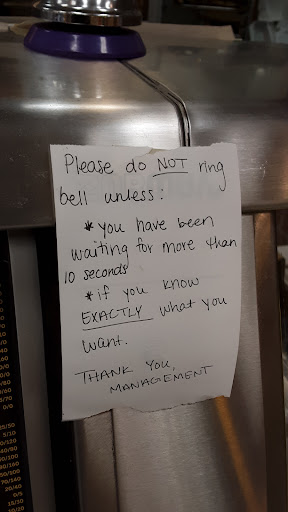 Please do NOT ring
bell unless:
* you have been
waiting for more than
10 seconds
* if you know
EXACTLY what you
want.
THANK YOU,
MANAGEMENT